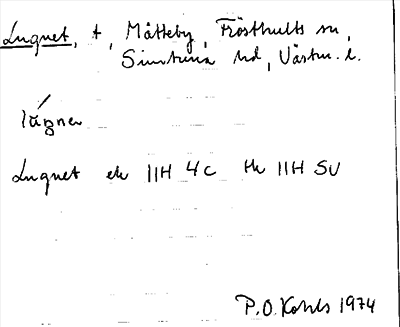 Lugnet, t, Måtteby, Frösthults sn,
Simtuna hd, Västm. l.
lúgne
Lugnet ek 11H 4c tk 11H SV
P.O. Kohls 1974